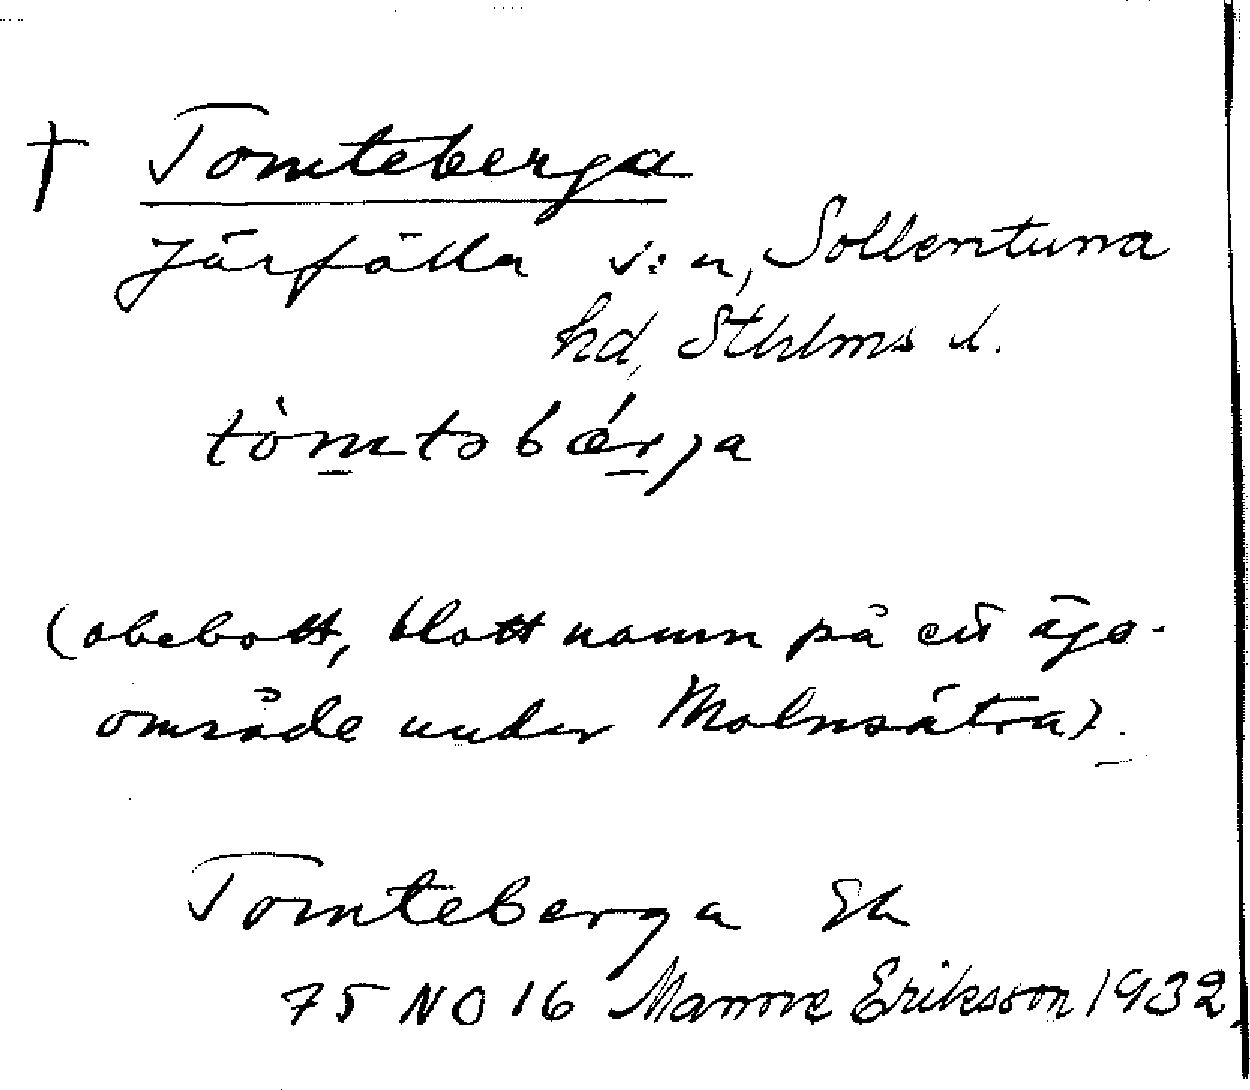 † Tomteberga
Järfälla s:n, Sollentuna
hd, Sthlms l.
tòmtəbǽrja
(obebott, blott namn på ett ägo-
område under Molnsätra).
Tomteberga Ek
75 NO 16 Manne Eriksson 1932.